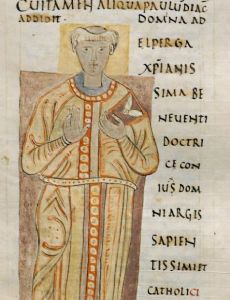 CUITAMEN ALIQUA PAULUS DIAC
ADDIDIT. DOMNA AD
ELPERGA
XPIANIS
SIMA BE
NEVENTI
DOCTRI
CE CON
IUS DOM
NI ARGIS
SAPIEN
TISSIMI ET
CATHOLICI